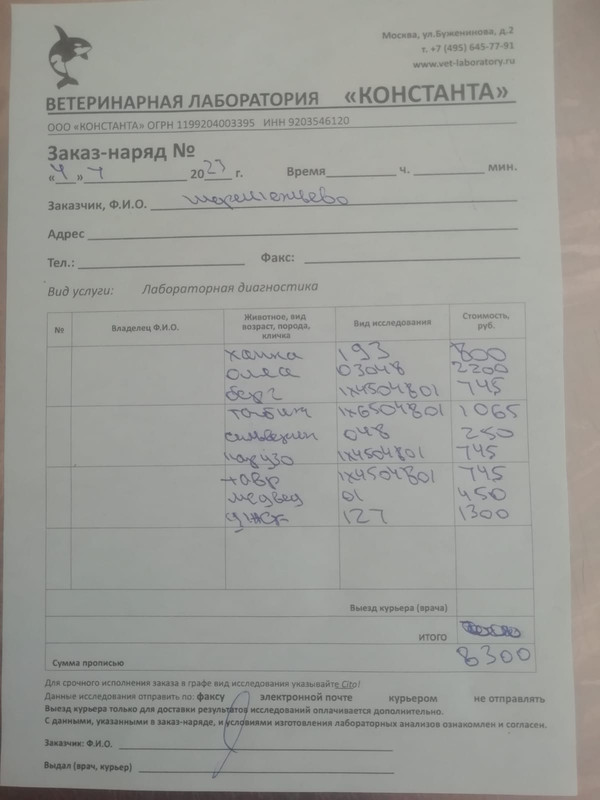 Москва, ул.Буженинова, д.2
т. +7 (495) 645-77-91
www.vet-laboratory.ru
ВЕТЕРИНАРНАЯ ЛАБОРАТОРИЯ «КОНСТАНТА»
ООО «КОНСТАНТА» ОГРН 1199204003395 ИНН 9203546120
Заказ-наряд №
«4» 4 2023 г. Время ч. мин.
Заказчик, Ф.И.О.
Адрес
Тел.: Факс:
Вид услуги: Лабораторная диагностика
№ Владелец Ф.И.О. Животное, вид возраст, порода, кличка Вид исследования Стоимость, руб.
ханна 193 800
олса 03048 2200
берг 1х4504801 745
1х6504801 1065
048 250
1х4504801 745
тавр 1х4504801 745
медвед 01 450
127 1300
Выезд курьера (врача)
ИТОГО
Сумма прописью 8300
Для срочного исполнения заказа в графе вид исследования указывайте Cito!
Данные исследования отправить по: факсу электронной почте курьером не отправлять
Выезд курьера только для доставки результатов исследований оплачивается дополнительно.
С данными, указанными в заказ-наряде, и условиями изготовления лабораторных анализов ознакомлен и согласен.
Заказчик: Ф.И.О.
Выдал (врач, курьер)